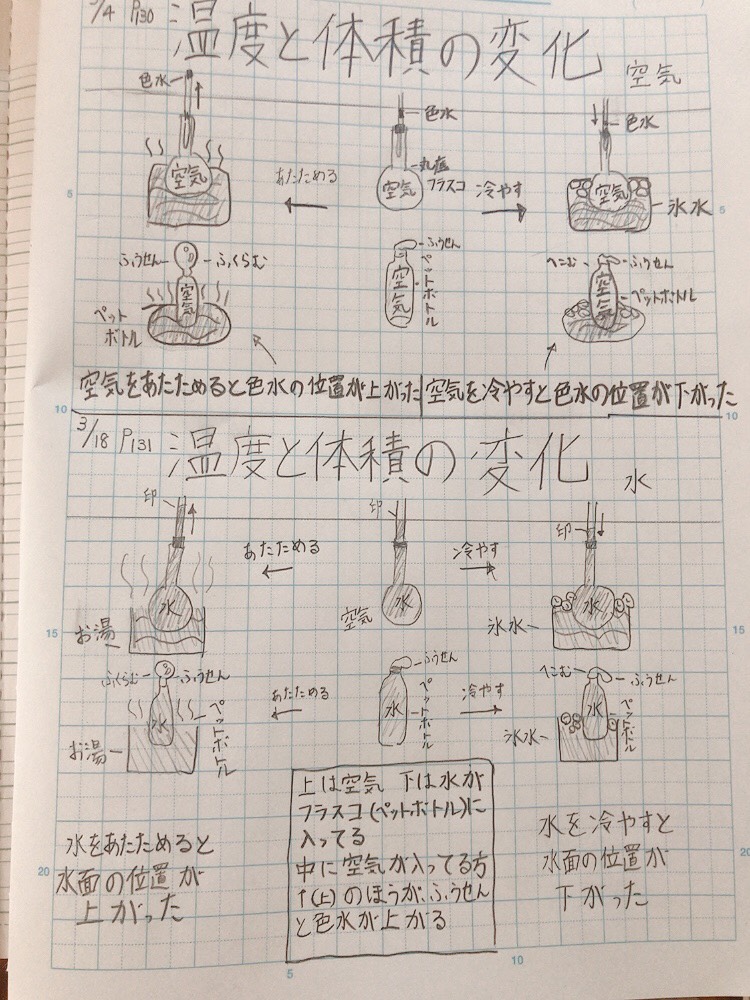 3/4 P130 温度と体積の変化 空気
色水 色水 色水
空気 あたためる 空気 丸底フラスコ 冷やす 空気 氷水
5 5
ふうせん ふくらむ ふうせん へこむ ふうせん
空気 空気 ペットボトル 空気 ペットボトル
ペットボトル
空気をあたためると色水の位置が上がった 空気を冷やすと色水の位置が下がった
10 10
3/18 P131 温度と体積の変化 水
印 印 印
あたためる 冷やす
水 空気 水 水
お湯 氷水
15 15
ふくらむ ふうせん ふうせん へこむ ふうせん
あたためる 冷やす
水 ペットボトル 水 ペットボトル 水 ペットボトル
お湯 氷水
上は空気 下は水が
フラスコ(ペットボトル)に
入ってる
中に空気が入ってる方
↑(上)のほうが、ふうせん
と色水が上がる
水をあたためると
水面の位置が
上がった
水を冷やすと
水面の位置が
下がった
20 20
5 10